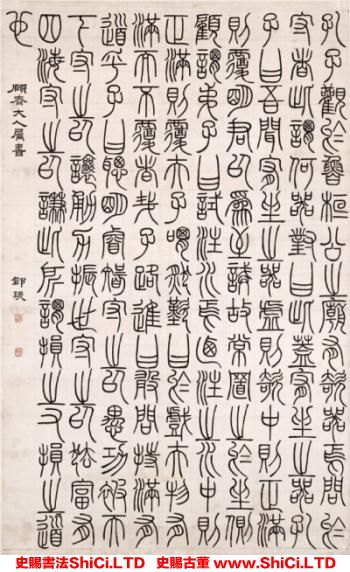 孔子觀於魯桓公之廟有欹器焉問於
守者此謂何器對曰此蓋宥坐之器孔
子曰吾聞宥坐之器虛則欹中則正滿
則覆明君以為至誡故常置之於坐側
顧謂弟子曰試注水焉乃注之水中則
正滿則覆夫子喟然歎曰於戲夫物有
滿而不覆者哉子路進曰敢問持滿有
道乎子曰聰明睿智守之以愚功被天
下守之以讓勇力振世守之以怯富有
四海守之以謙此所謂損之又損之道
也
顧齋大人屬書
鄧琰
史賜書法ShiCi.LTD 史賜古董 www.ShiCi.LTD